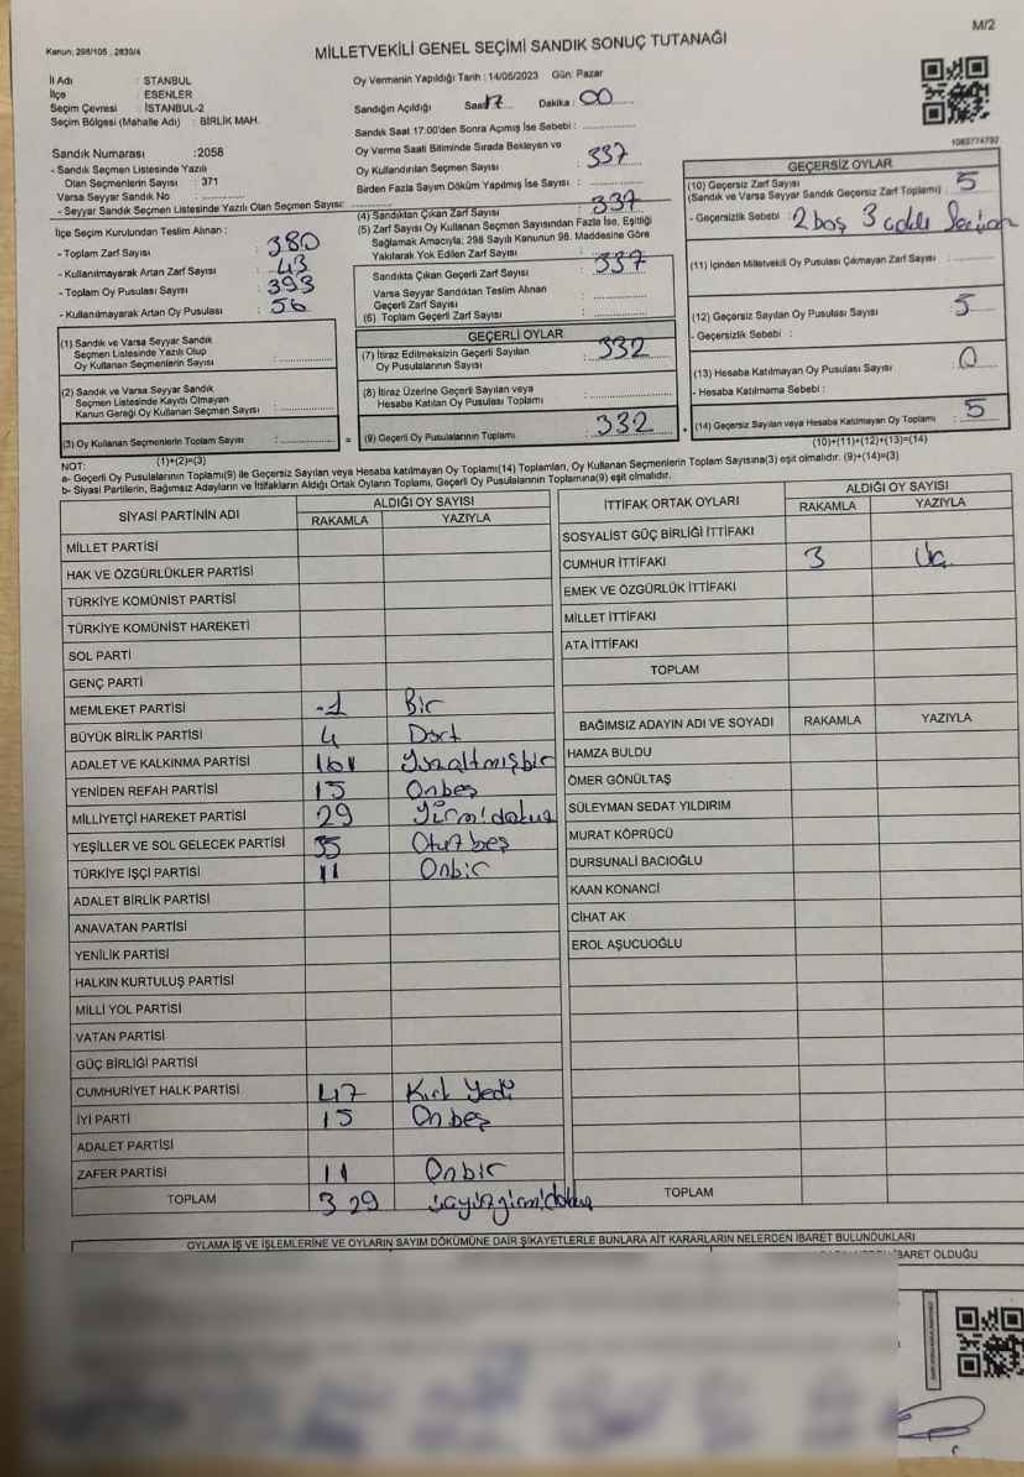 M/2
Kanun: 298/105 , 2839/4
MİLLETVEKİLİ GENEL SEÇİMİ SANDIK SONUÇ TUTANAĞI
İl Adı : İSTANBUL
İlçe : ESENLER
Seçim Çevresi : İSTANBUL-2
Seçim Bölgesi (Mahalle Adı) : BİRLİK MAH.
Sandık Numarası :2058
- Sandık Seçmen Listesinde Yazılı
Olan Seçmenlerin Sayısı : 371
Varsa Seyyar Sandık No :
- Seyyar Sandık Seçmen Listesinde Yazılı Olan Seçmen Sayısı:
İlçe Seçim Kurulundan Teslim Alınan :
- Toplam Zarf Sayısı : 380
- Kullanılmayarak Artan Zarf Sayısı : 43
- Toplam Oy Pusulası Sayısı : 393
- Kullanılmayarak Artan Oy Pusulası : 56
(1) Sandık ve Varsa Seyyar Sandık
Seçmen Listesinde Yazılı Olup
Oy Kullanan Seçmenlerin Sayısı :
(2) Sandık ve Varsa Seyyar Sandık
Seçmen Listesinde Kayıtlı Olmayan
Kanun Gereği Oy Kullanan Seçmen Sayısı :
(3) Oy Kullanan Seçmenlerin Toplam Sayısı :
(1)+(2)=(3)
Oy Vermenin Yapıldığı Tarih : 14/05/2023 Gün: Pazar
Sandığın Açıldığı Saat 17 Dakika : 00
Sandık Saat 17.00'den Sonra Açımış İse Sebebi :
Oy Verme Saati Bitiminde Sırada Bekleyen ve
Oy Kullandırılan Seçmen Sayısı : 337
Birden Fazla Sayım Döküm Yapılmış İse Sayısı :
(4) Sandıktan Çıkan Zarf Sayısı : 337
(5) Zarf Sayısı Oy Kullanan Seçmen Sayısından Fazla İse, Eşitliği
Sağlamak Amacıyla; 298 Sayılı Kanunun 98. Maddesine Göre
Yakılarak Yok Edilen Zarf Sayısı :
Sandıkta Çıkan Geçerli Zarf Sayısı : 337
Varsa Seyyar Sandıktan Teslim Alınan
Geçerli Zarf Sayısı :
(6) Toplam Geçerli Zarf Sayısı :
GEÇERLİ OYLAR
(7) İtiraz Edilmeksizin Geçerli Sayılan
Oy Pusulalarının Sayısı : 332
(8) İtiraz Üzerine Geçerli Sayılan veya
Hesaba Katılan Oy Pusulası Toplamı :
= (9) Geçerli Oy Pusulalarının Toplamı : 332
1083774792
GEÇERSİZ OYLAR
(10) Geçersiz Zarf Sayısı
(Sandık ve Varsa Seyyar Sandık Geçersiz Zarf Toplamı) : 5
- Geçersizlik Sebebi : 2 boş 3 adet
(11) İçinden Milletvekili Oy Pusulası Çıkmayan Zarf Sayısı :
(12) Geçersiz Sayılan Oy Pusulası Sayısı : 5
- Geçersizlik Sebebi :
(13) Hesaba Katılmayan Oy Pusulası Sayısı : 0
- Hesaba Katılmama Sebebi :
(14) Geçersiz Sayılan veya Hesaba Katılmayan Oy Toplamı : 5
(10)+(11)+(12)+(13)=(14)
NOT:
a- Geçerli Oy Pusulalarının Toplamı(9) ile Geçersiz Sayılan veya Hesaba katılmayan Oy Toplamı(14) Toplamları, Oy Kullanan Seçmenlerin Toplam Sayısına(3) eşit olmalıdır. (9)+(14)=(3)
b- Siyasi Partilerin, Bağımsız Adayların ve İttifakların Aldığı Ortak Oyların Toplamı, Geçerli Oy Pusulalarının Toplamına(9) eşit olmalıdır.
SİYASİ PARTİNİN ADI ALDIĞI OY SAYISI
RAKAMLA YAZIYLA
MİLLET PARTİSİ
HAK VE ÖZGÜRLÜKLER PARTİSİ
TÜRKİYE KOMÜNİST PARTİSİ
TÜRKİYE KOMÜNİST HAREKETİ
SOL PARTİ
GENÇ PARTİ
MEMLEKET PARTİSİ -1 Bir
BÜYÜK BİRLİK PARTİSİ 4 Dört
ADALET VE KALKINMA PARTİSİ 161 Yüzaltmışbir
YENİDEN REFAH PARTİSİ 15 Onbeş
MİLLİYETÇİ HAREKET PARTİSİ 29 Yirmidokuz
YEŞİLLER VE SOL GELECEK PARTİSİ 35 Otuzbeş
TÜRKİYE İŞÇİ PARTİSİ 11 Onbir
ADALET BİRLİK PARTİSİ
ANAVATAN PARTİSİ
YENİLİK PARTİSİ
HALKIN KURTULUŞ PARTİSİ
MİLLİ YOL PARTİSİ
VATAN PARTİSİ
GÜÇ BİRLİĞİ PARTİSİ
CUMHURİYET HALK PARTİSİ 47 Kırk Yedi
İYİ PARTİ 15 Onbeş
ADALET PARTİSİ
ZAFER PARTİSİ 11 Onbir
TOPLAM 329 üçyüzyirmidokuz
İTTİFAK ORTAK OYLARI ALDIĞI OY SAYISI
RAKAMLA YAZIYLA
SOSYALİST GÜÇ BİRLİĞİ İTTİFAKI
CUMHUR İTTİFAKI 3 Üç
EMEK VE ÖZGÜRLÜK İTTİFAKI
MİLLET İTTİFAKI
ATA İTTİFAKI
TOPLAM
BAĞIMSIZ ADAYIN ADI VE SOYADI RAKAMLA YAZIYLA
HAMZA BULDU
ÖMER GÖNÜLTAŞ
SÜLEYMAN SEDAT YILDIRIM
MURAT KÖPRÜCÜ
DURSUNALİ BACIOĞLU
KAAN KONANCİ
CİHAT AK
EROL AŞUCUOĞLU
TOPLAM
OYLAMA İŞ VE İŞLEMLERİNE VE OYLARIN SAYIM DÖKÜMÜNE DAİR ŞİKAYETLERLE BUNLARA AİT KARARLARIN NELERDEN İBARET BULUNDUKLARI
İBARET OLDUĞU